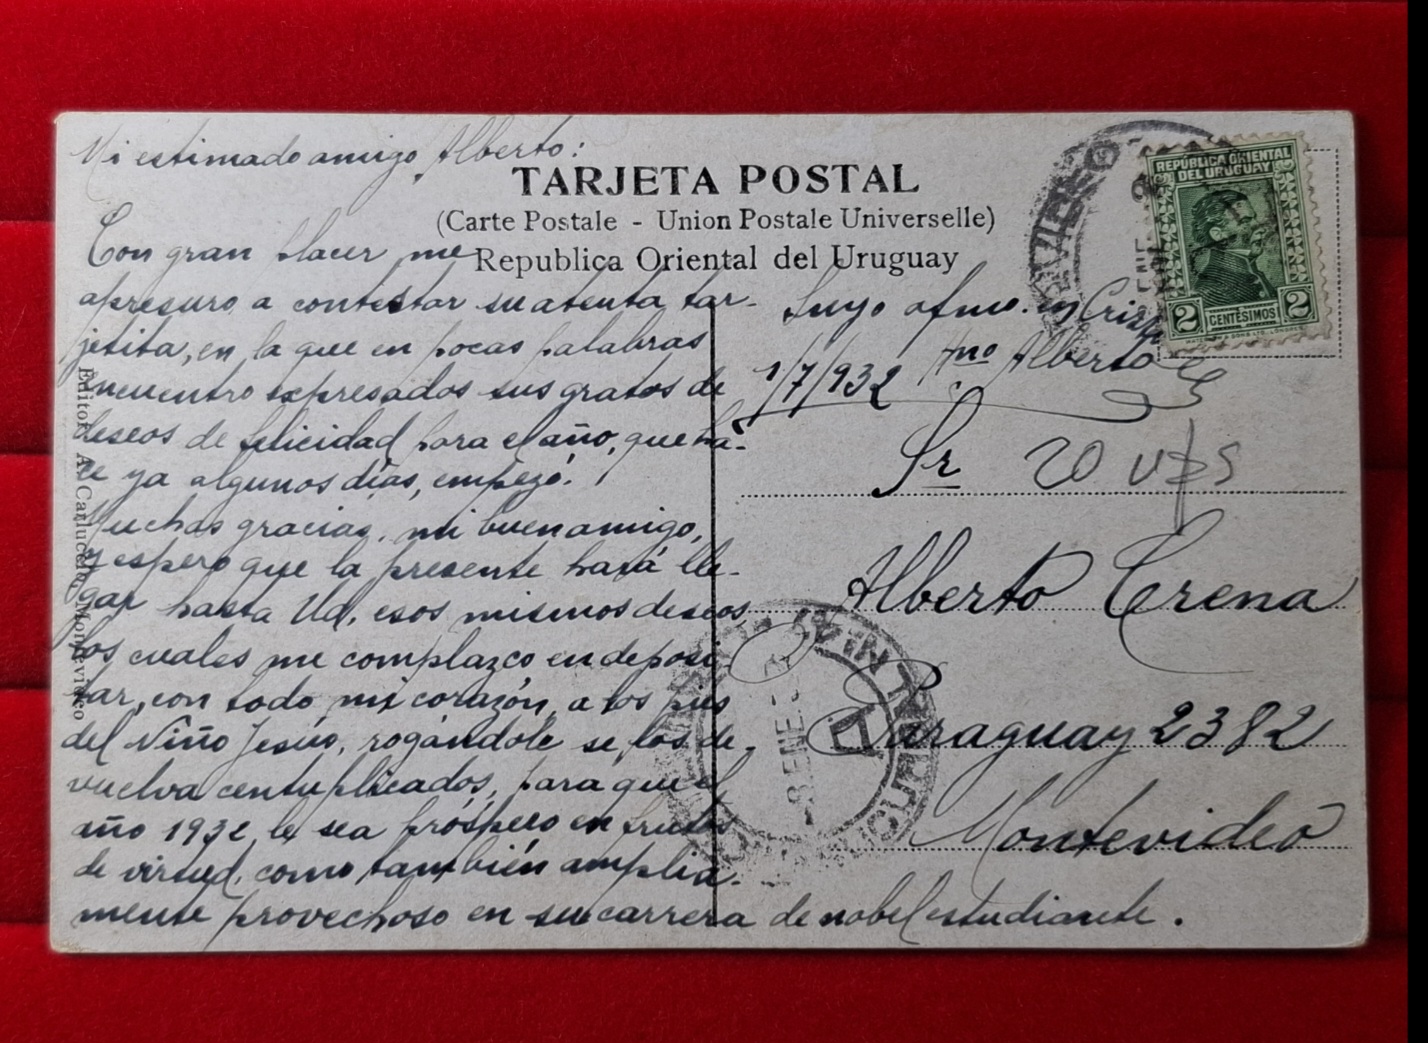 Mi estimado amigo Alberto:
TARJETA POSTAL
(Carte Postale - Union Postale Universelle)
Republica Oriental del Uruguay
Con gran placer me
apresuro a contestar su atenta tar-
jetita, en la que en pocas palabras
encuentro expresados sus gratos de
deseos de felicidad para el año, que ha-
ce ya algunos días, empezó!
Muchas gracias, mi buen amigo,
y espero que la presente hará lle-
gar hasta Ud. esos mismos deseos,
los cuales me complazco en deposi-
tar, con todo mi corazón, a los pies
del Niño Jesús, rogándole se los de-
vuelva centuplicados, para que el
año 1932 le sea próspero en frutos
de virtud, como también amplia-
mente provechoso en su carrera de nobel estudiante.
Suyo afmo. en Cristo
Hno Alberto
1/7/932
Sr
20 U$S
Alberto Crena
Paraguay 2382
Montevideo
Editor A. Carluccio, Montevideo
REPÚBLICA ORIENTAL
DEL URUGUAY
2 CENTÉSIMOS 2
8 ENE